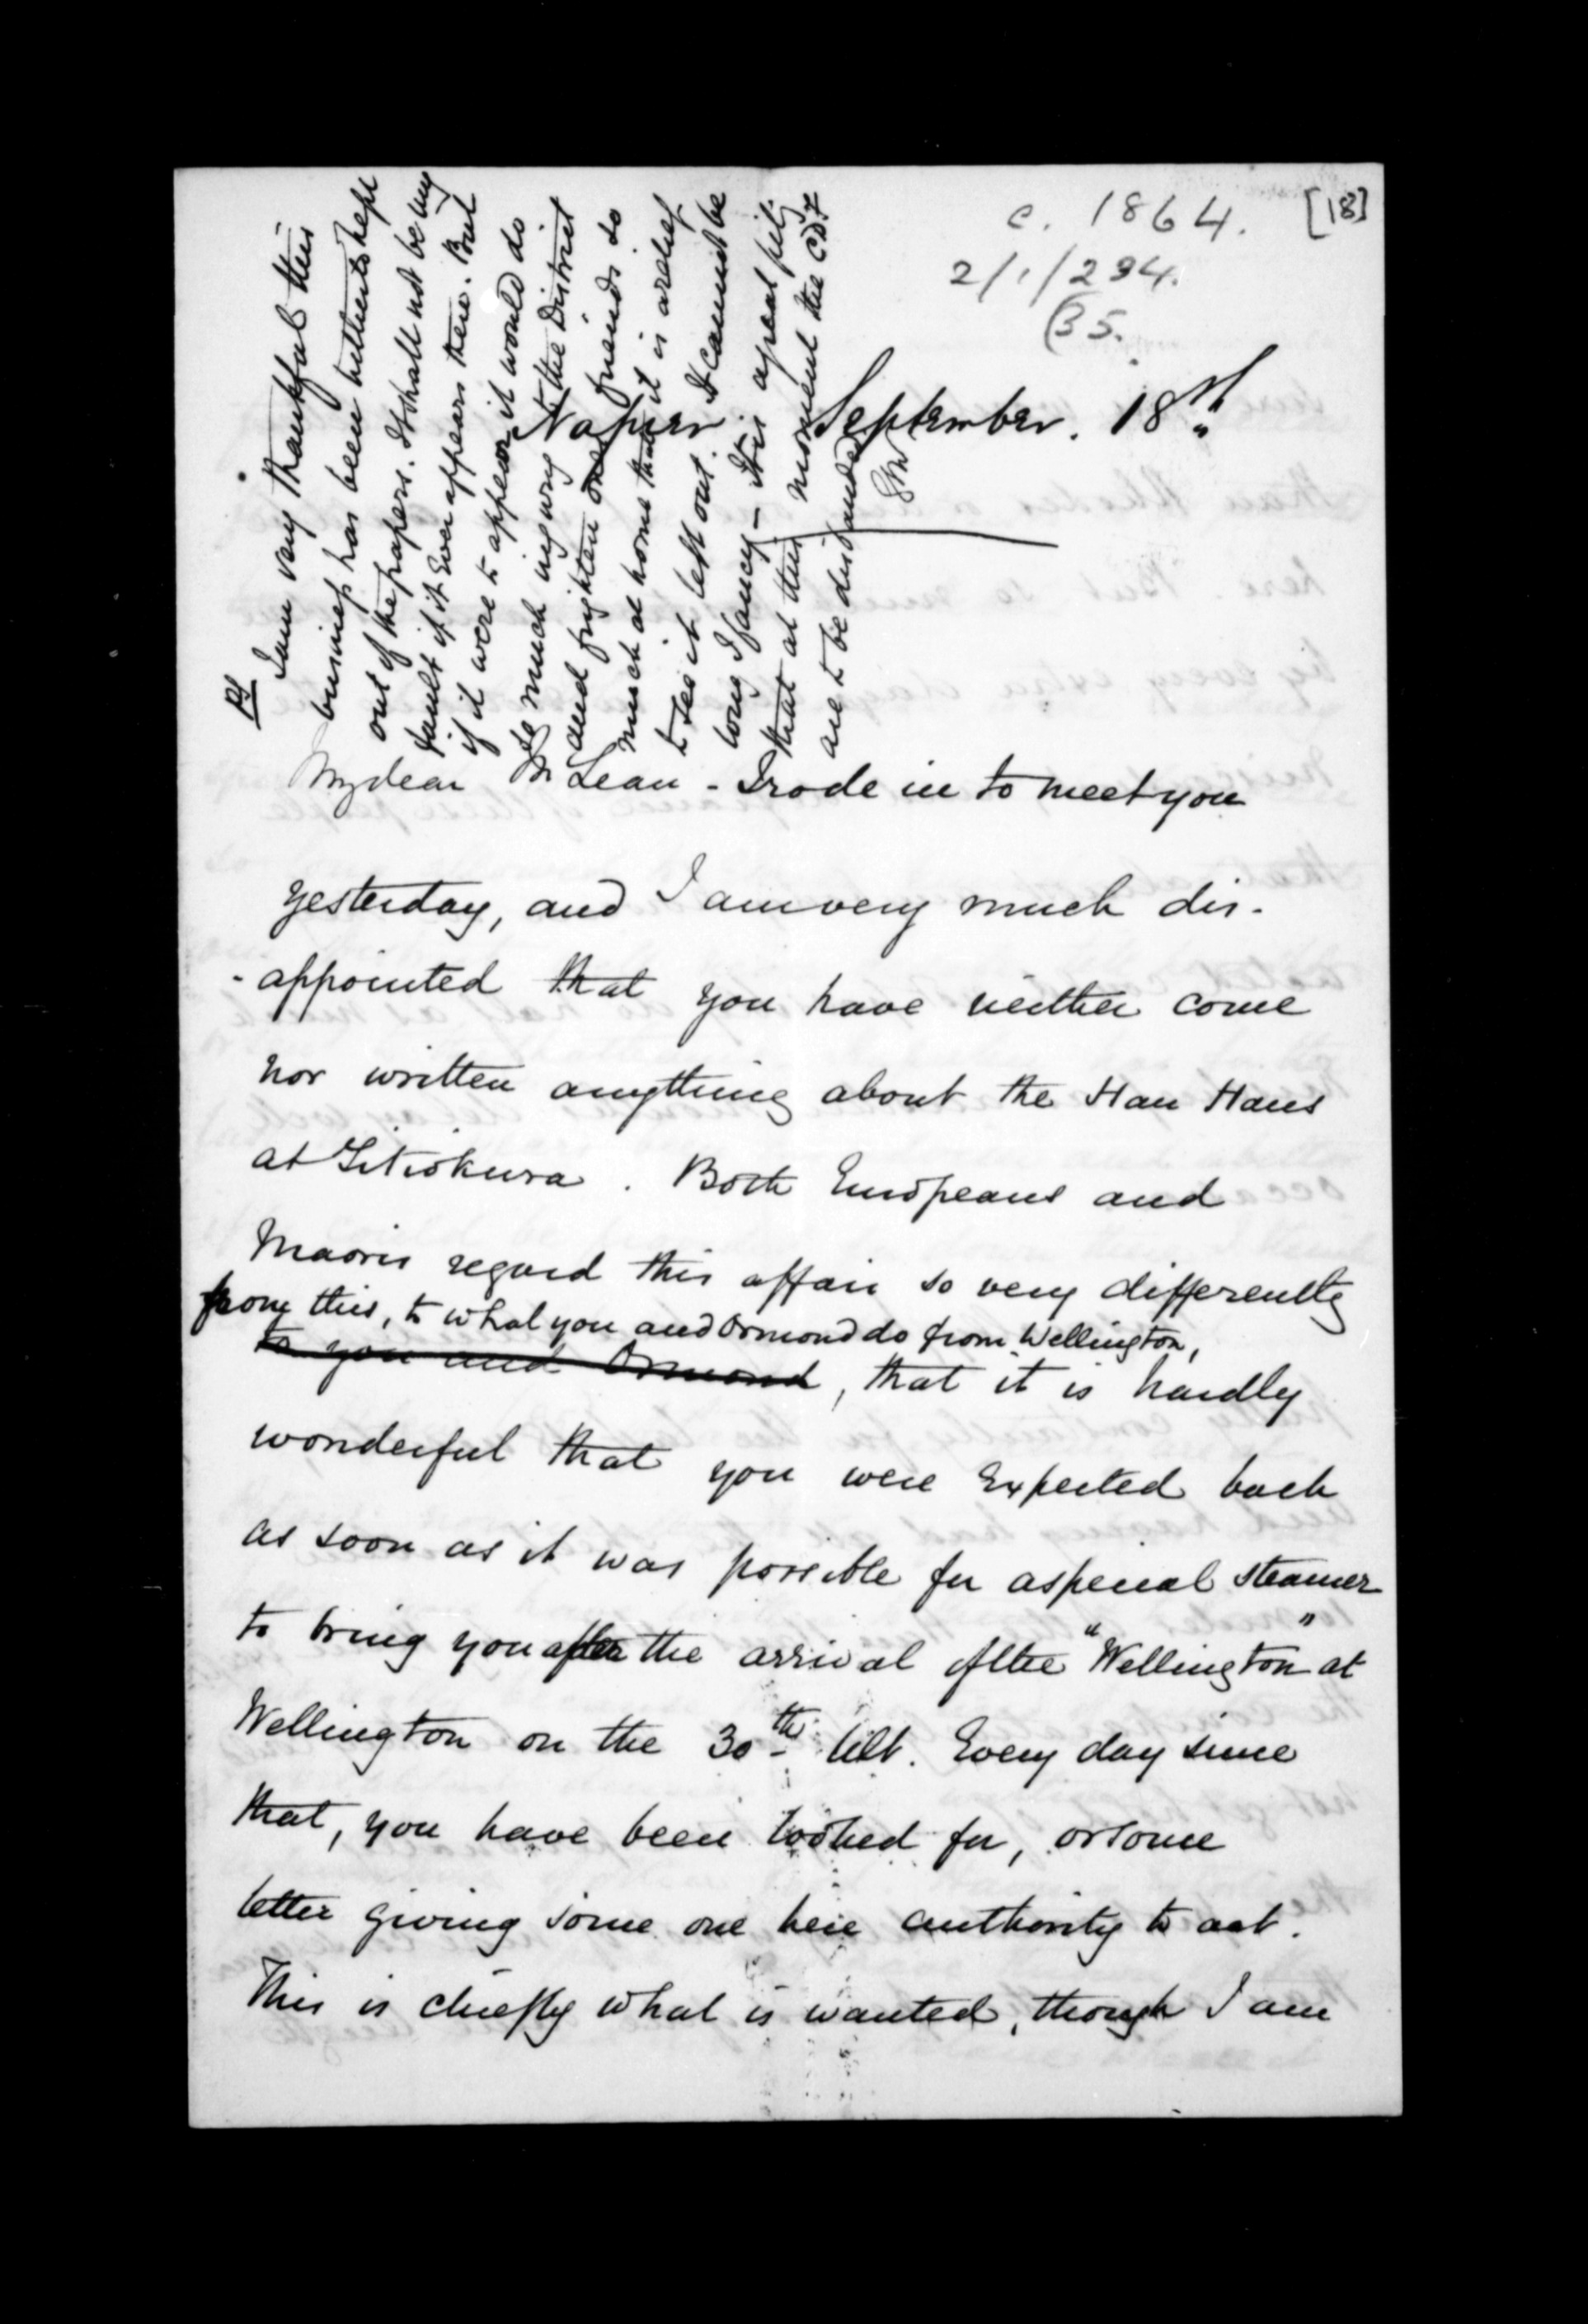 c. 1864. [18]
2/1/234.
(35.
Napier. September. 18th
My dear McLean - I rode in to meet you
yesterday, and I am very much dis-
-appointed that you have neither come
nor written anything about the Hau Haus
at Titiokura. Both Europeans and
Maoris regard this affair so very differently
from this, to what you and Ormond do from Wellington,
to you and Ormond, that it is hardly
wonderful that you were Expected back
as soon as it was possible for a special steamer
to bring you after the arrival of the "Wellington" at
Wellington on the 30th ult. Every day since
that, you have been looked for, or some
letter giving some one here authority to act.
This is chiefly what is wanted, though I am
PS
I am very thankful this
business has been hitherto kept
out of the papers. It shall not be my
fault if it Ever appears there. But
if it were to appear it would do
so much injury to the District
and frighten one's friends so
much at home that it is a relief
to see it left out. It cannot be
long I fancy - It is a great pity
that at this moment the C.D.F
are to be disbanded